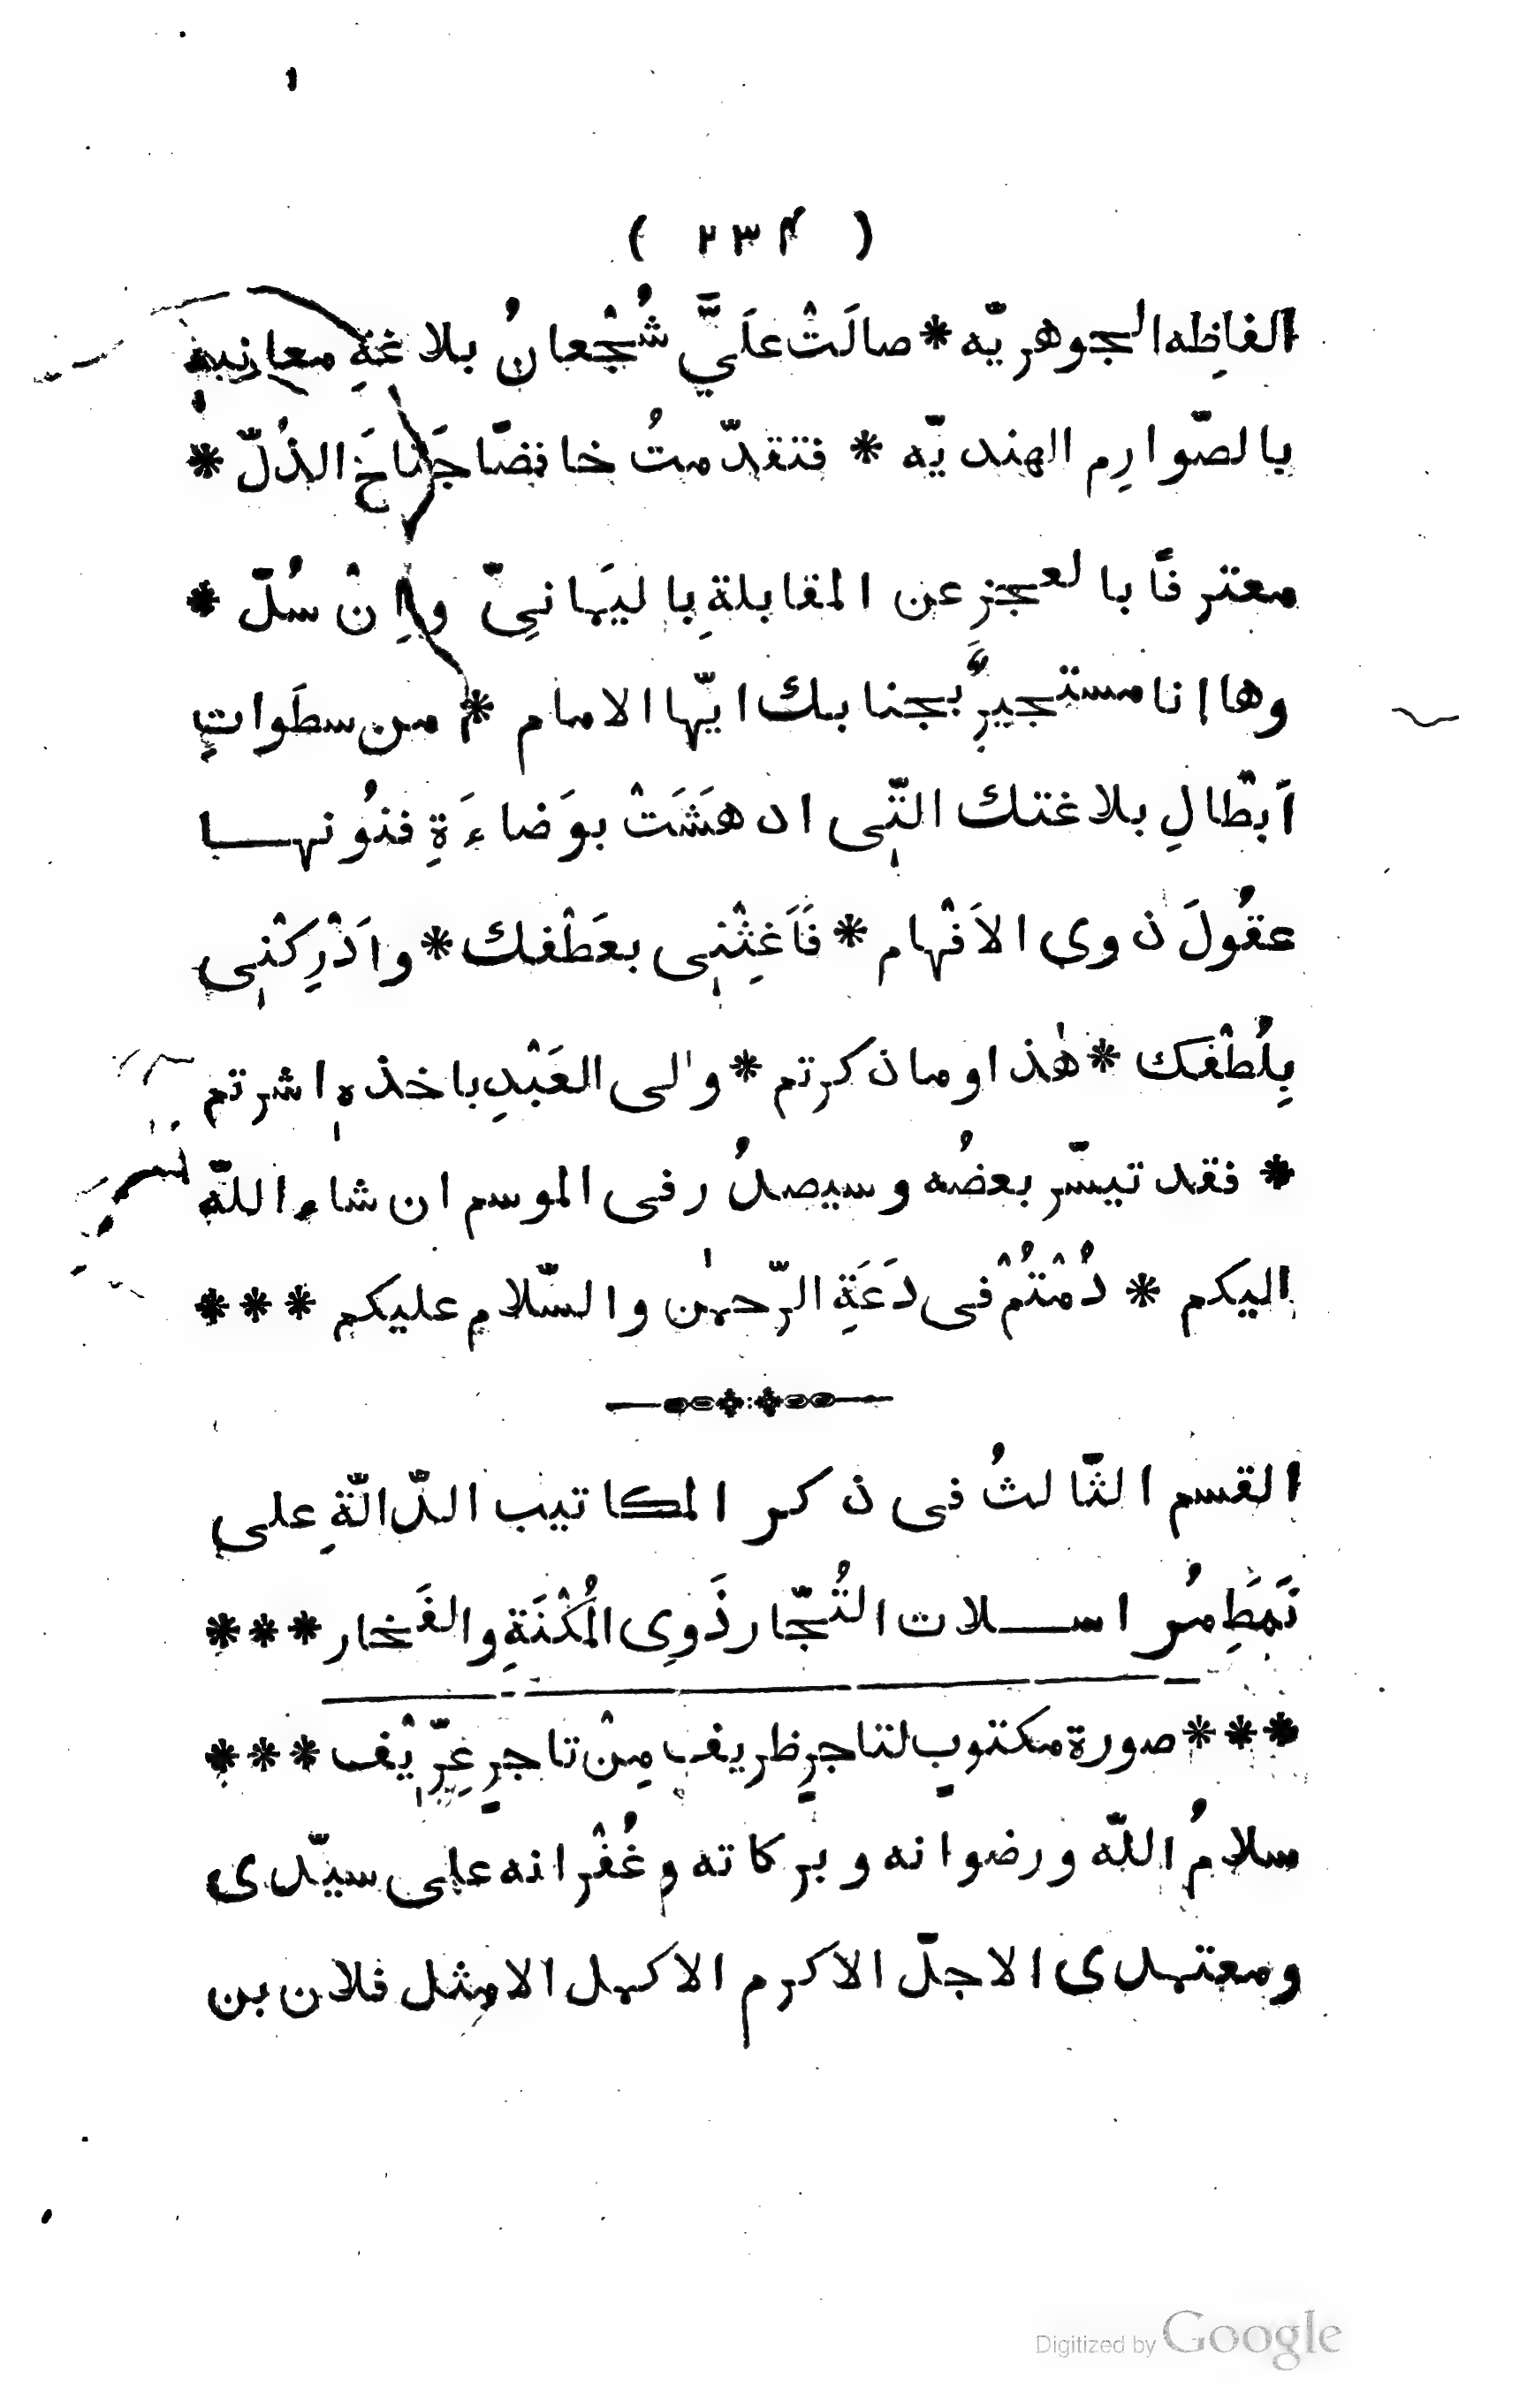 ( ٢٣۴ )
الفاظِه الجوهريّه * صالَتْ علَيَّ شُجْعانُ بلاغةِ معانيهِ
بالصّوارِم الهنديّه * فتقدّمتُ خافضًا جَناحَ الذُلّ *
معترفًا بالعجز عن المقابلةِ باليَمانيِّ وإنْ سُلّ *
وها انا مستجيرٌ بجنابك ايّها الامام * من سطَواتِ
اَبطالِ بلاغتك الّتي ادهَشَتْ بوَضاءَةِ فنُونهـــا
عقُولَ ذوى الاَفْهام * فَاَغِثْنِي بعَطْفك * واَدْرِكْنِي
بِلُطْفك * هٰذا وما ذكرتم * والى العَبْدِ باخذهِ اشرتم
* فقد تيسّر بعضُه وسيصدُر في الموسم ان شاء اللّه
اليكم * دُمْتُمْ في دَعَةِ الرّحمٰن والسّلام عليكم * * *
القسم الثّالثُ في ذكر المكاتيب الدّالّةِ على
نَمَطِ مُراســلات التُجّار ذَوِى المُكْنَةِ والفَخار * * *
* * * صورة مكتوبٍ لتاجرٍ ظريف مِنْ تاجرٍ غِرِّيْف * * *
سلامُ اللّه ورضوانه وبركاته وغُفْرانه على سيّدى
ومعتمدى الاجلّ الاكرم الاكمل الامثل فلان بن
Digitized by Google